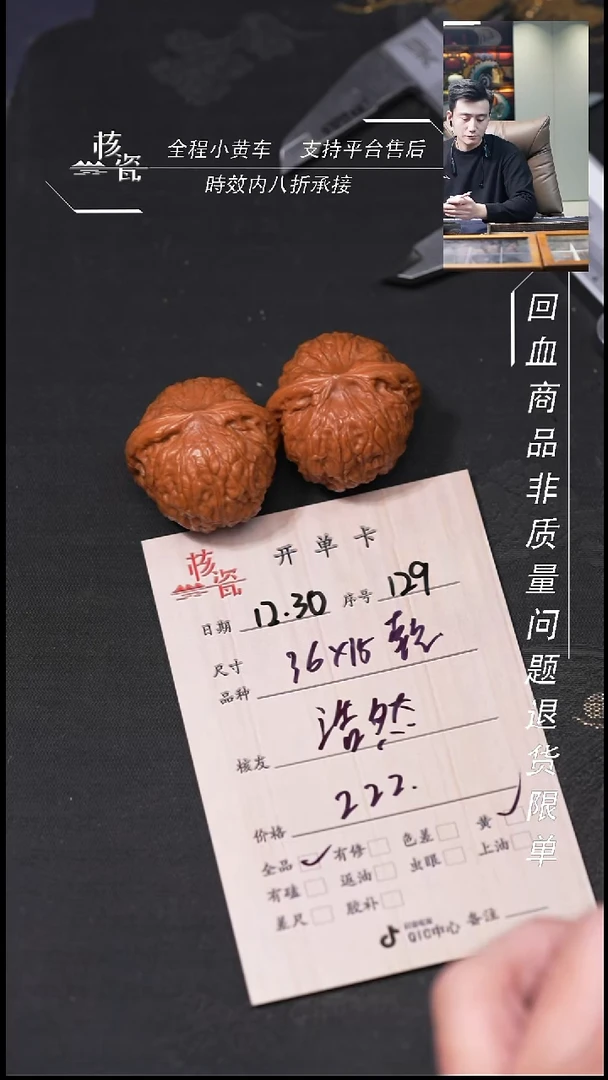 核瓷
全程小黄车 支持平台售后
時效内八折承接
回血商品非质量问题退货限单
核瓷
开单卡
日期 12.30 序号 129
尺寸
品种 36x15
核友 浩然
价格 222.
全品 有修 色差 黄
有磕 返油 虫眼 上油
差尺 胶补
QIC中心 备注